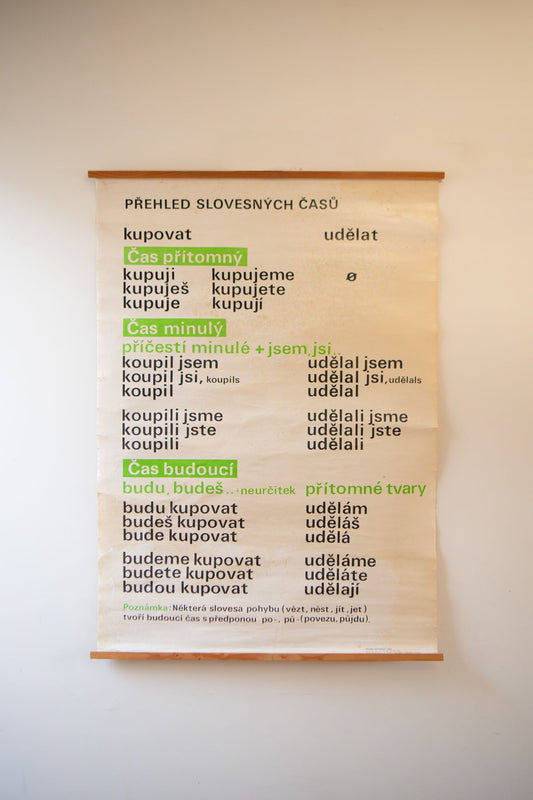 PŘEHLED SLOVESNÝCH ČASŮ
kupovat udělat
Čas přítomný
kupuji kupujeme ø
kupuješ kupujete
kupuje kupují
Čas minulý
příčestí minulé + jsem, jsi..
koupil jsem udělal jsem
koupil jsi, koupils udělal jsi, udělals
koupil udělal
koupili jsme udělali jsme
koupili jste udělali jste
koupili udělali
Čas budoucí
budu, budeš .. + neurčitek přítomné tvary
budu kupovat udělám
budeš kupovat uděláš
bude kupovat udělá
budeme kupovat uděláme
budete kupovat uděláte
budou kupovat udělají
Poznámka: Některá slovesa pohybu (vézt, nést, jít, jet)
tvoří budoucí čas s předponou po-, pů- (povezu, půjdu).